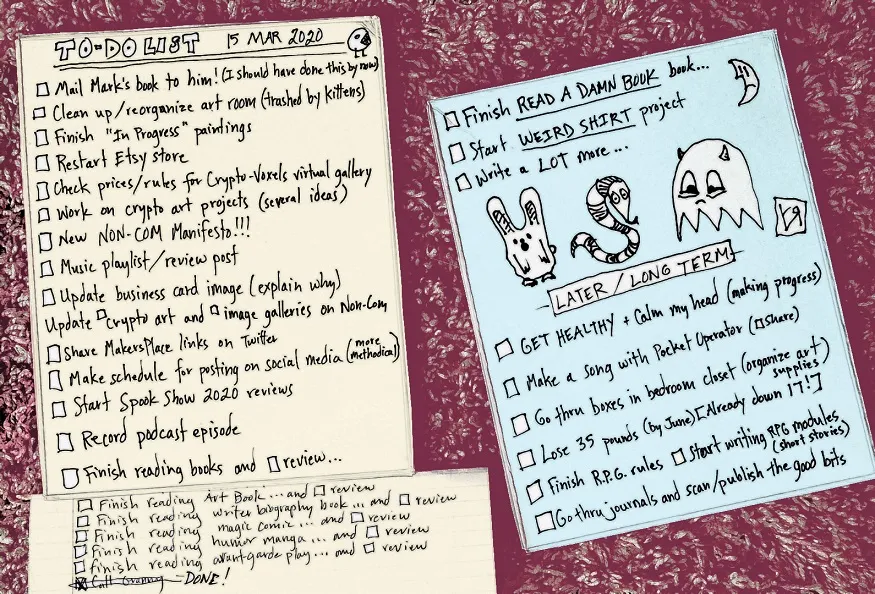 TO-DO LIST 15 MAR 2020
Mail Mark's book to him! (I should have done this by now)
Clean up/reorganize art room (trashed by kittens)
Finish "In Progress" paintings
Restart Etsy store
Check prices/rules for Crypto-Voxels virtual gallery
Work on crypto art projects (several ideas)
New NON-COM Manifesto!!!
Music playlist/review post
Update business card image (explain why)
Update crypto art and image galleries on Non-Com
Share MakersPlace links on Twitter
Make schedule for posting on social media (more methodical)
Start Spook Show 2020 reviews
Record podcast episode
Finish reading books and review...
Finish reading Art Book... and review
Finish reading writer biography book... and review
Finish reading magic comic... and review
Finish reading humor manga... and review
finish reading avant-garde play... and review
Call Granny - DONE!
Finish READ A DAMN BOOK book...
Start WEIRD SHIRT project
Write a LOT more...
LATER/LONG TERM
GET HEALTHY + Calm my head (making progress)
Make a song with Pocket Operator (share)
Go thru boxes in bedroom closet (organize art supplies)
Lose 35 pounds (by June) [Already down 17!]
Finish R.P.G. rules Start writing RPG modules (short stories)
Go thru journals and scan/publish the good bits